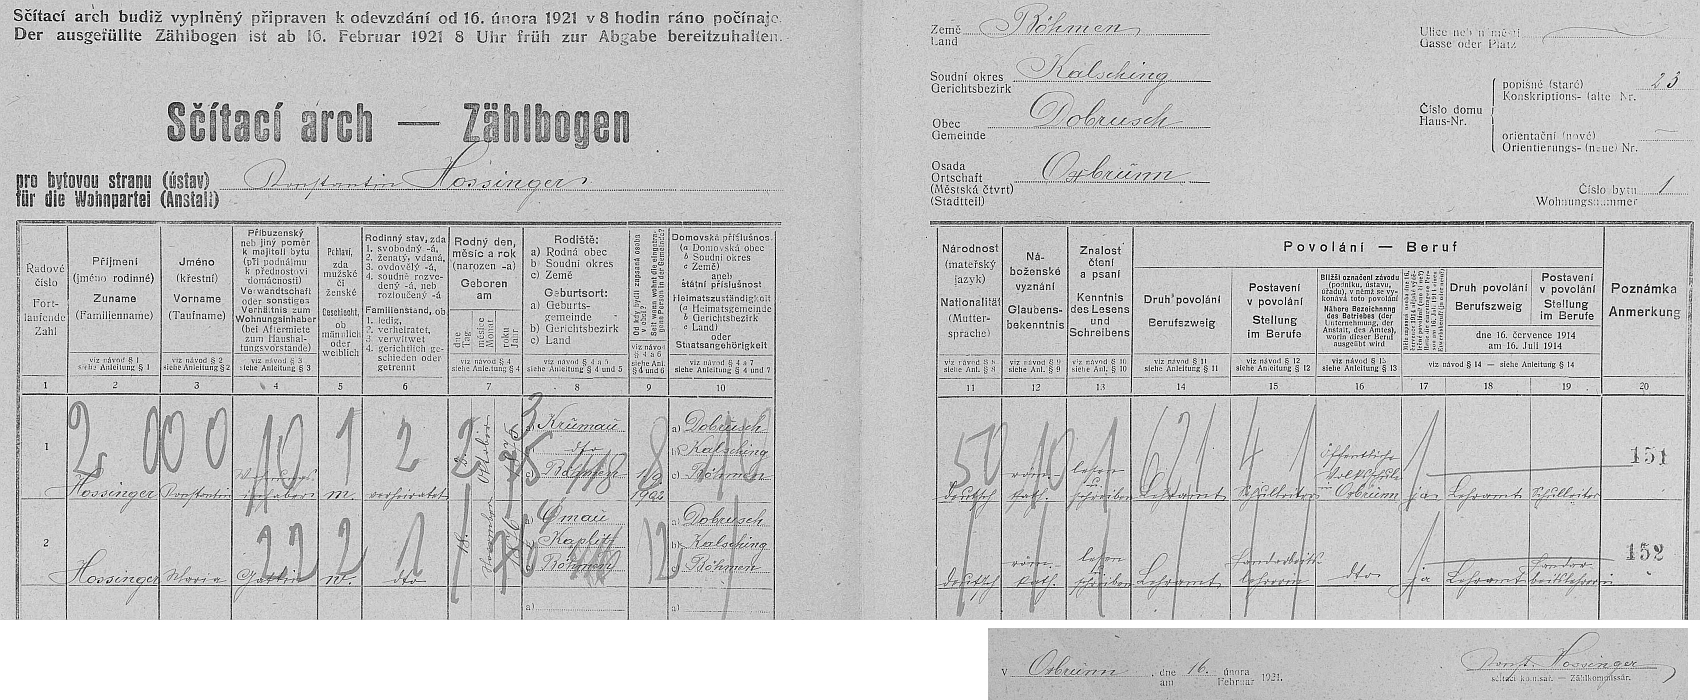 Sčítací arch budiž vyplněný připraven k odevzdání od 16. února 1921 v 8 hodin ráno počínaje.
Der ausgefüllte Zählbogen ist ab 16. Februar 1921 8 Uhr früh zur Abgabe bereitzuhalten.
Sčítací arch — Zählbogen
pro bytovou stranu (ústav)
für die Wohnpartei (Anstalt)
Konstantin Hossinger
Země
Land
Böhmen
Soudní okres
Gerichtsbezirk
Kalsching
Obec
Gemeinde
Dobrusch
Osada
Ortschaft
(Městská čtvrť)
(Stadtteil)
Oxbrunn
Ulice neb náměstí
Gasse oder Platz
Číslo domu
Haus-Nr.
popisné (staré)
Konskriptions- (alte) Nr.
23
orientační (nové)
Orientierungs- (neue) Nr.
Číslo bytu
Wohnungsnummer
1
Řadové číslo
Fortlaufende Zahl
1
Příjmení
(jméno rodinné)
Zuname
(Familienname)
viz návod § 1
siehe Anleitung § 1
2
Jméno
(křestní)
Vorname
(Taufname)
viz návod § 2
siehe Anleitung § 2
3
Příbuzenský
neb jiný poměr
k majiteli bytu
(při podnájmu
k přednostovi
domácnosti)
Verwandtschaft
oder sonstiges
Verhältnis zum
Wohnungsinhaber
(bei Aftermiete
zum Haushal-
tungsvorstande)
viz návod § 3
siehe Anleitung § 3
4
Pohlaví,
zda
mužské
či
ženské
Geschlecht,
ob
männlich
oder
weiblich
5
Rodinný stav, zda
1. svobodný -á,
2. ženatý, vdaná,
3. ovdovělý -á,
4. soudně rozve-
dený -á, neb
rozloučený -á
Familienstand, ob
1. ledig,
2. verheiratet,
3. verwitwet
4. gerichtlich ge-
schieden oder
getrennt
6
Rodný den,
měsíc a rok
(narozen -a)
Geboren
am
dne
Tag
měsíce
Monat
roku
Jahr
viz návod § 4
siehe Anleitung § 4
7
Rodiště:
a) Rodná obec
b) Soudní okres
c) Země
Geburtsort:
a) Geburts-
gemeinde
b) Gerichtsbezirk
c) Land
viz návod § 4 a 5
siehe Anleitung § 4 und 5
8
Od kdy bydlí zapsaná osoba
v obci?
Seit wann wohnt die eingetra-
gene Person in der Gemeinde?
9
Domovská příslušnost
(a Domovská obec
b Soudní okres
c Země)
aneb
státní příslušnost
Heimatszuständigkeit
(a Heimatsgemeinde
b Gerichtsbezirk
c Land)
oder
Staatsangehörigkeit
viz návod § 4 a 7
siehe Anleitung § 4 und 7
10
Národnost
(mateřský
jazyk)
Nationalität
(Mutter-
sprache)
viz návod § 8
siehe Anleitung § 8
11
Ná-
boženské
vyznání
Glaubens-
bekenntnis
viz návod § 9
siehe Anleitung § 9
12
Znalost
čtení
a psaní
Kenntnis
des Lesens
und
Schreibens
viz návod § 10
siehe Anleitung § 10
13
Povolání — Beruf
Druh povolání
Berufszweig
viz návod § 11
siehe Anleitung § 11
14
Postavení
v povolání
Stellung
im Berufe
viz návod § 12
siehe Anleitung § 12
15
Bližší označení závodu
(podniku, ústavu,
úřadu), v němž se vy-
konává toto povolání
Nähere Bezeichnung
des Betriebes (der
Unternehmung, der
Anstalt, des Amtes),
worin dieser Beruf
ausgeübt wird
viz návod § 13
siehe Anleitung § 13
16
17
Druh povolání
Berufszweig
Postavení
v povolání
Stellung
im Berufe
dne 16. července 1914
am 16. Juli 1914
viz návod § 14 — siehe Anleitung § 14
18
19
Poznámka
Anmerkung
20
1
Hossinger
Konstantin
Wohnungs-
inhaber
m.
verheiratet
Oktober
a) Krumau
dto
c) Böhmen
a) Dobrusch
b) Kalsching
c) Böhmen
deutsch
röm.-
kath.
lesen
u.
schreiben
Lehramt
Schulleiter
öffentliche
Volksschule
Oxbrunn
ja
Lehramt
Schulleiter
151
2
Hossinger
Maria
Gattin
w.
dto
18.
November
Kaplitz
Böhmen
a) Dobrusch
b) Kalsching
c) Böhmen
deutsch
röm.-
kath.
lesen
u.
schreiben
Lehramt
dto
ja
Lehramt
152
a)
a)
v Oxbrunn dne 16. února 1921.
am Februar
Konst. Hossinger
sčítací komisař. — Zählkommissär.